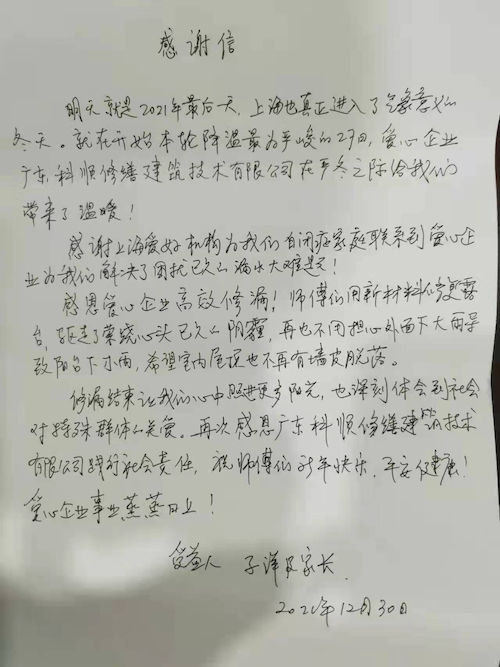 感谢信
明天就是2021年最后一天，上海也真正进入了气象意义的
冬天。就在开始本轮降温最为严峻的27日，爱心企业
广东科顺修缮建筑技术有限公司在严冬之际给我们
带来了温暖！
感谢上海爱好机构为我们自闭症家庭联系到爱心企
业为我们解决了困扰已久的漏水大难题！
感恩爱心企业高效修漏！师傅们用新材料修复露
台，驱走了萦绕心头已久的阴霾，再也不用担心外面下大雨导
致阳台下小雨，希望室内尽快也不再有墙皮脱落。
修漏结束让我们心中照进更多阳光，也深刻体会到社会
对特殊群体的关爱。再次感恩广东科顺修缮建筑技术
有限公司践行社会责任，祝师傅们新年快乐，平安健康！
爱心企业事业蒸蒸日上！
受益人 子洋及家长
2021年12月30日